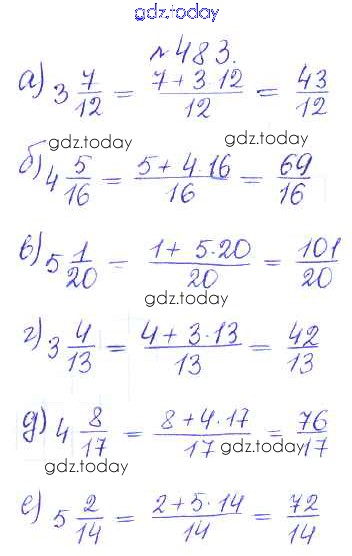 gdz.today
№483.
а) 3 7/12 = (7+3·12)/12 = 43/12
gdz.today
б) 4 5/16 = (5+4·16)/16 = 69/16
в) 5 1/20 = (1+5·20)/20 = 101/20
gdz.today
г) 3 4/13 = (4+3·13)/13 = 42/13
д) 4 8/17 = (8+4·17)/17 = 76/17
gdz.today
gdz.today
е) 5 2/14 = (2+5·14)/14 = 72/14